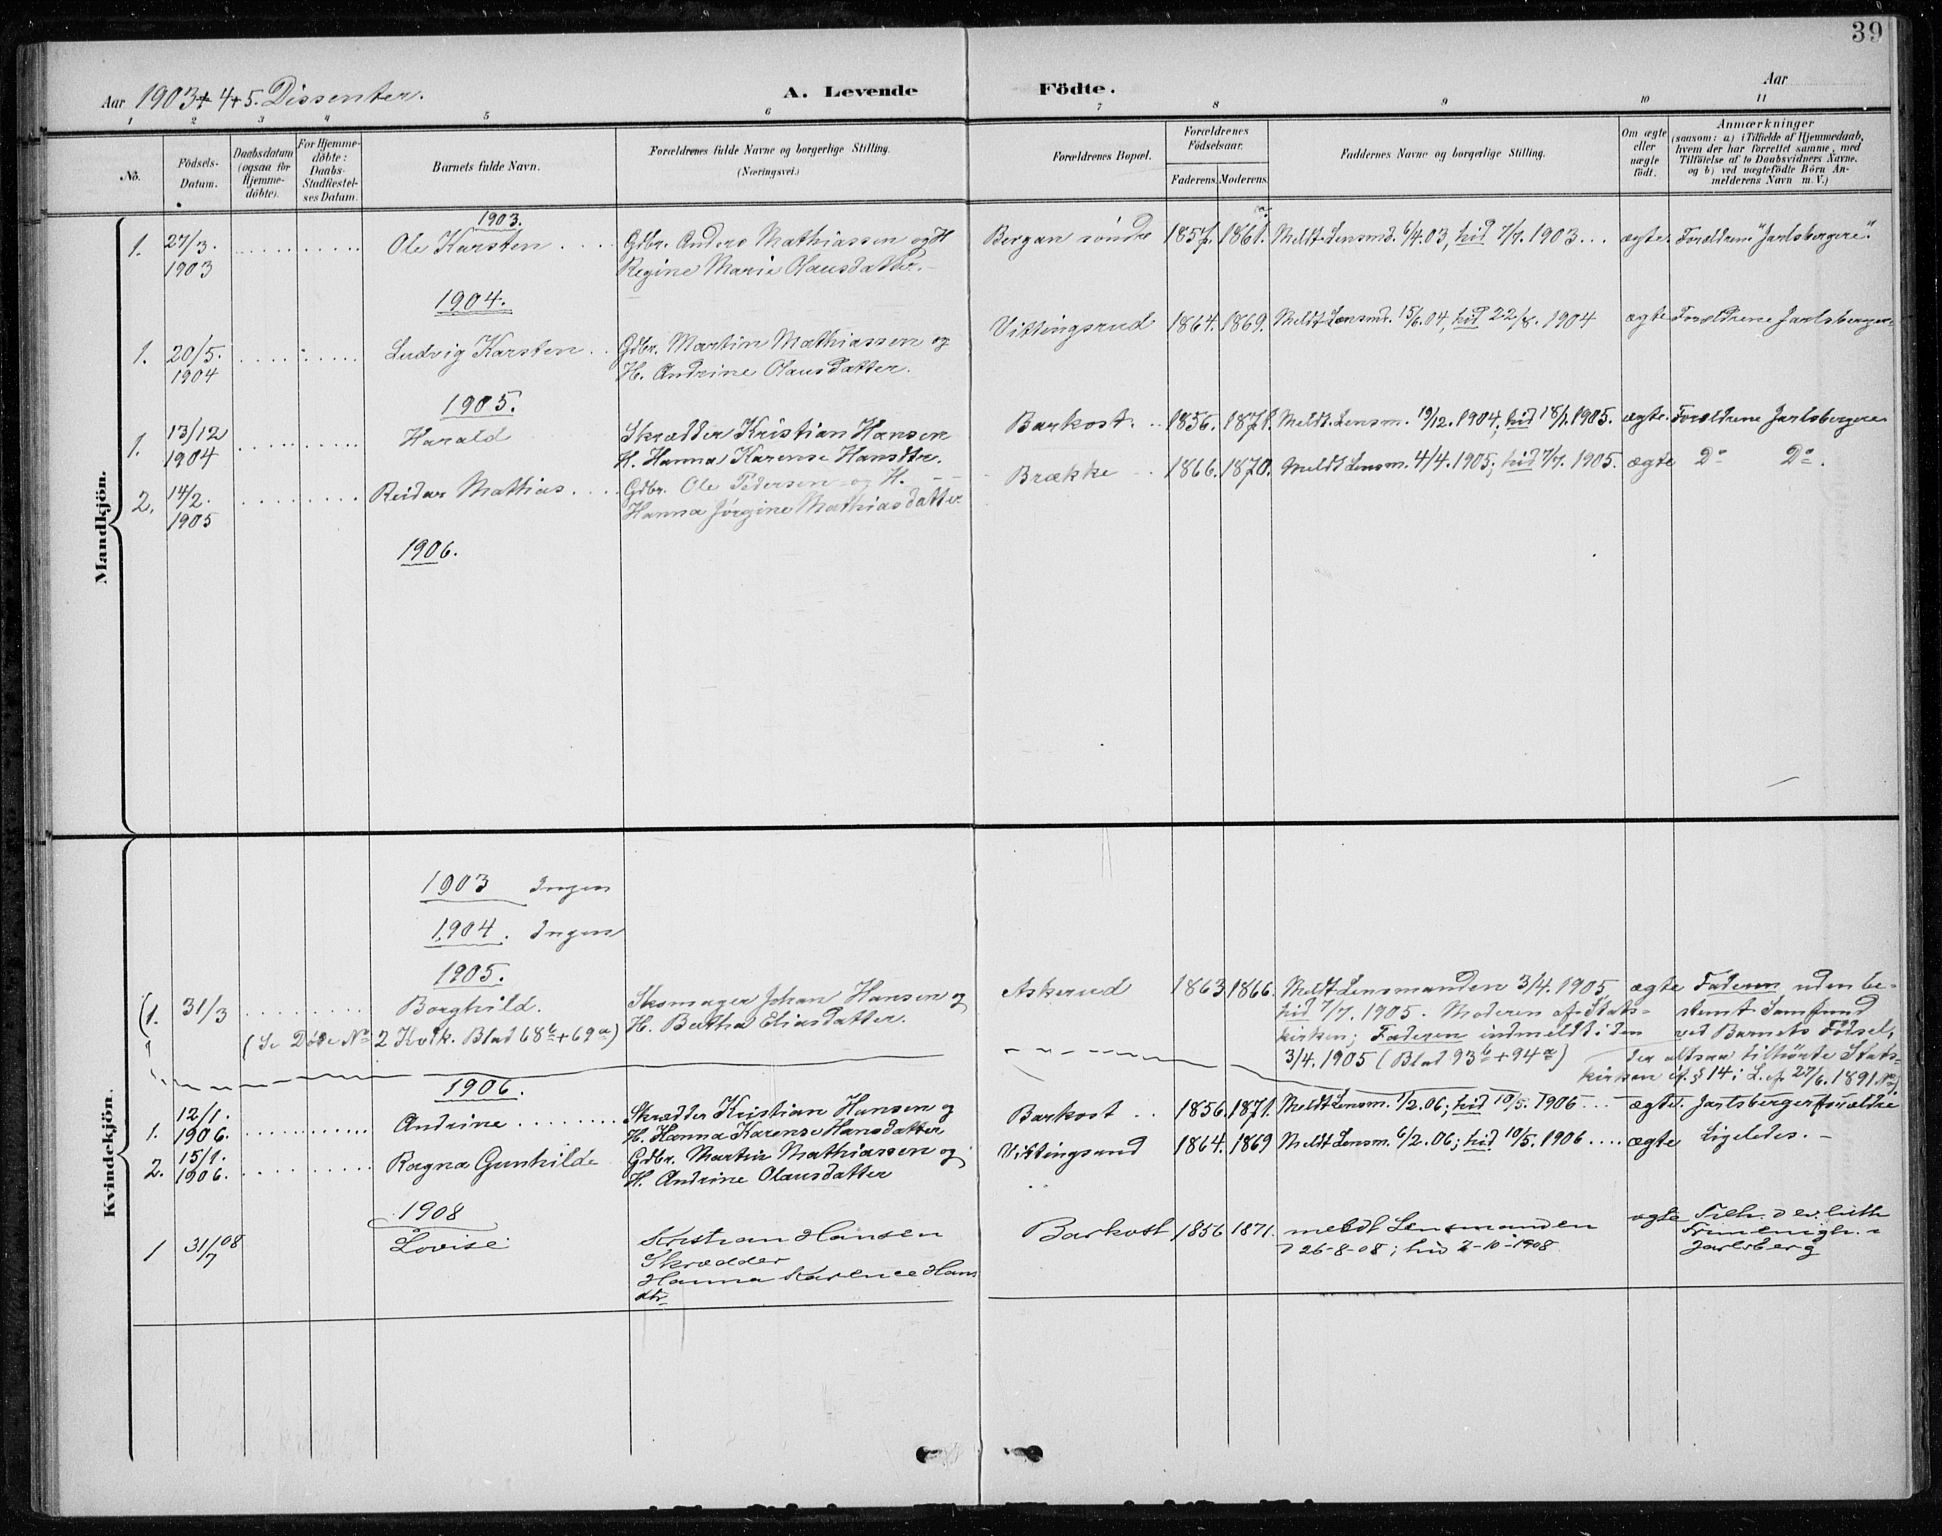 39
Aar 1903+4+5. Dissenter.
A. Levende Födte.
Aar
1 2 3 4 5 6 7 8 9 10 11
No.
Födsels-Datum.
Daabsdatum (ogsaa for Hjemme-döbte).
For Hjemme-döbte: Daabs-Stadfæstel-ses Datum.
Barnets fulde Navn.
Forældrenes fulde Navne og borgerlige Stilling. (Næringsvei.)
Forældrenes Bopæl.
Forældrenes Födselsaar.
Faderens. Moderens.
Faddernes Navne og borgerlige Stilling.
Om ægte eller uægte födt.
Anmærkninger
(saasom: a) i Tilfælde af Hjemmedaab, hvem der har forrettet samme, med Tilföielse af to Daabsvidners Navne. og b) ved uægtefödte Börn An-melderens Navn m. V.)
Mandkjön.
1903.
1. 27/3. 1903 Ole Karsten Gdbr. Anders Mathiassen og H Bergan söndre 1857. 1861. Meldt Lensmd. 6/4.03, hid 7/7. 1903 ... ægte. Forældrene "Jarlsbergere".
Regine Marie Olausdatter.
1904.
1. 20/5. 1904 Ludvig Karsten Gdbr. Martin Mathiassen og Vittingsrud 1864. 1869. Meldt Lensmd. 15/6.04, hid 22/8. 1904 ægte Forældrene Jarlsberger
H. Andrine Olausdatter.
1905.
1. 13/12 1904 Harald Skrædder Kristian Hansen Barkost. 1856. 1871. Meldt Lensm. 19/12. 1904, hid 18/1. 1905. ægte. Forældrene Jarlsbergere
H. Hanna Karense Hansdtr.
2. 14/2. 1905 Reidar Mathias Gdbr. Ole Pedersen og H. Brække 1866. 1870. Meldt Lensm. 4/4. 1905; hid 7/7. 1905. ægte Do Do.
Hanna Jörgine Mathiasdatter
1906.
Kvindekjön.
1903 Ingen
1904. Ingen
1905.
(1. 31/3 Borghild. Skomager Johan Hansen og Askerud 1863 1866. Meldt Lensmanden 3/4. 1905 ægte Faderen uden be-
H. Bertha Eliasdatter. hid 7/7. 1905. Moderen af Stats- stemt Samfund
(Se Döde No 2 Kvk. Blad 68b+69a) kirken; Faderen indmeldt i den ved Barnets Födsel,
3/4. 1905 (Blad 93b+94a) der altsaa tilhörte Stats-
kirken if. § 14 i L. af 27/6. 1891
1906.
1. 12/1. 1906. Andrine Skrædder Kristian Hansen og Barkost .. 1856. 1871. Meldt Lensm. 1/2.06; hid 10/5. 1906 ... ægte. Jarlsbergerforældre
H. Hanna Karense Hansdatter
2. 15/1. 1906. Ragna Gunhilde Gdbr. Martin Mathiassen og Vittingsrud 1864. 1869 Meldt Lensm. 6/2.06; hid 10/5. 1906 .... ægte Ligeledes.
H. Andrine Olausdatter
1908
1 31/7 08 Lovise Kristian Hansen Barkost 1856 1871. meldt Lensmanden ægte Tilh. d ev. luth
Skrædder d 26-8-08; hid 2-10-1908 Frimenigh. i
Hanna Karence Hans Jarlsberg
dtr